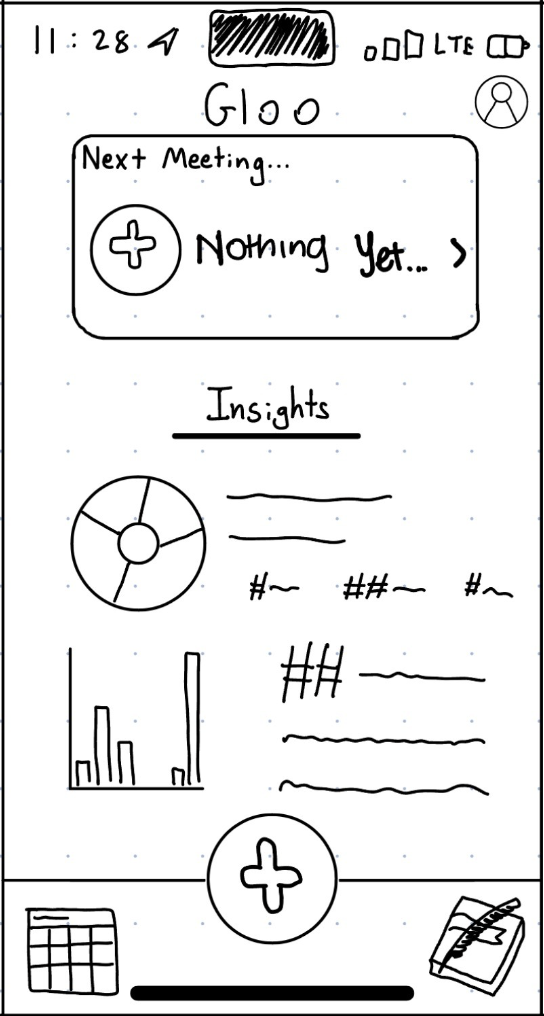 11:28 LTE
Gloo
Next Meeting...
Nothing Yet...
Insights
#~ ##~ #~
##